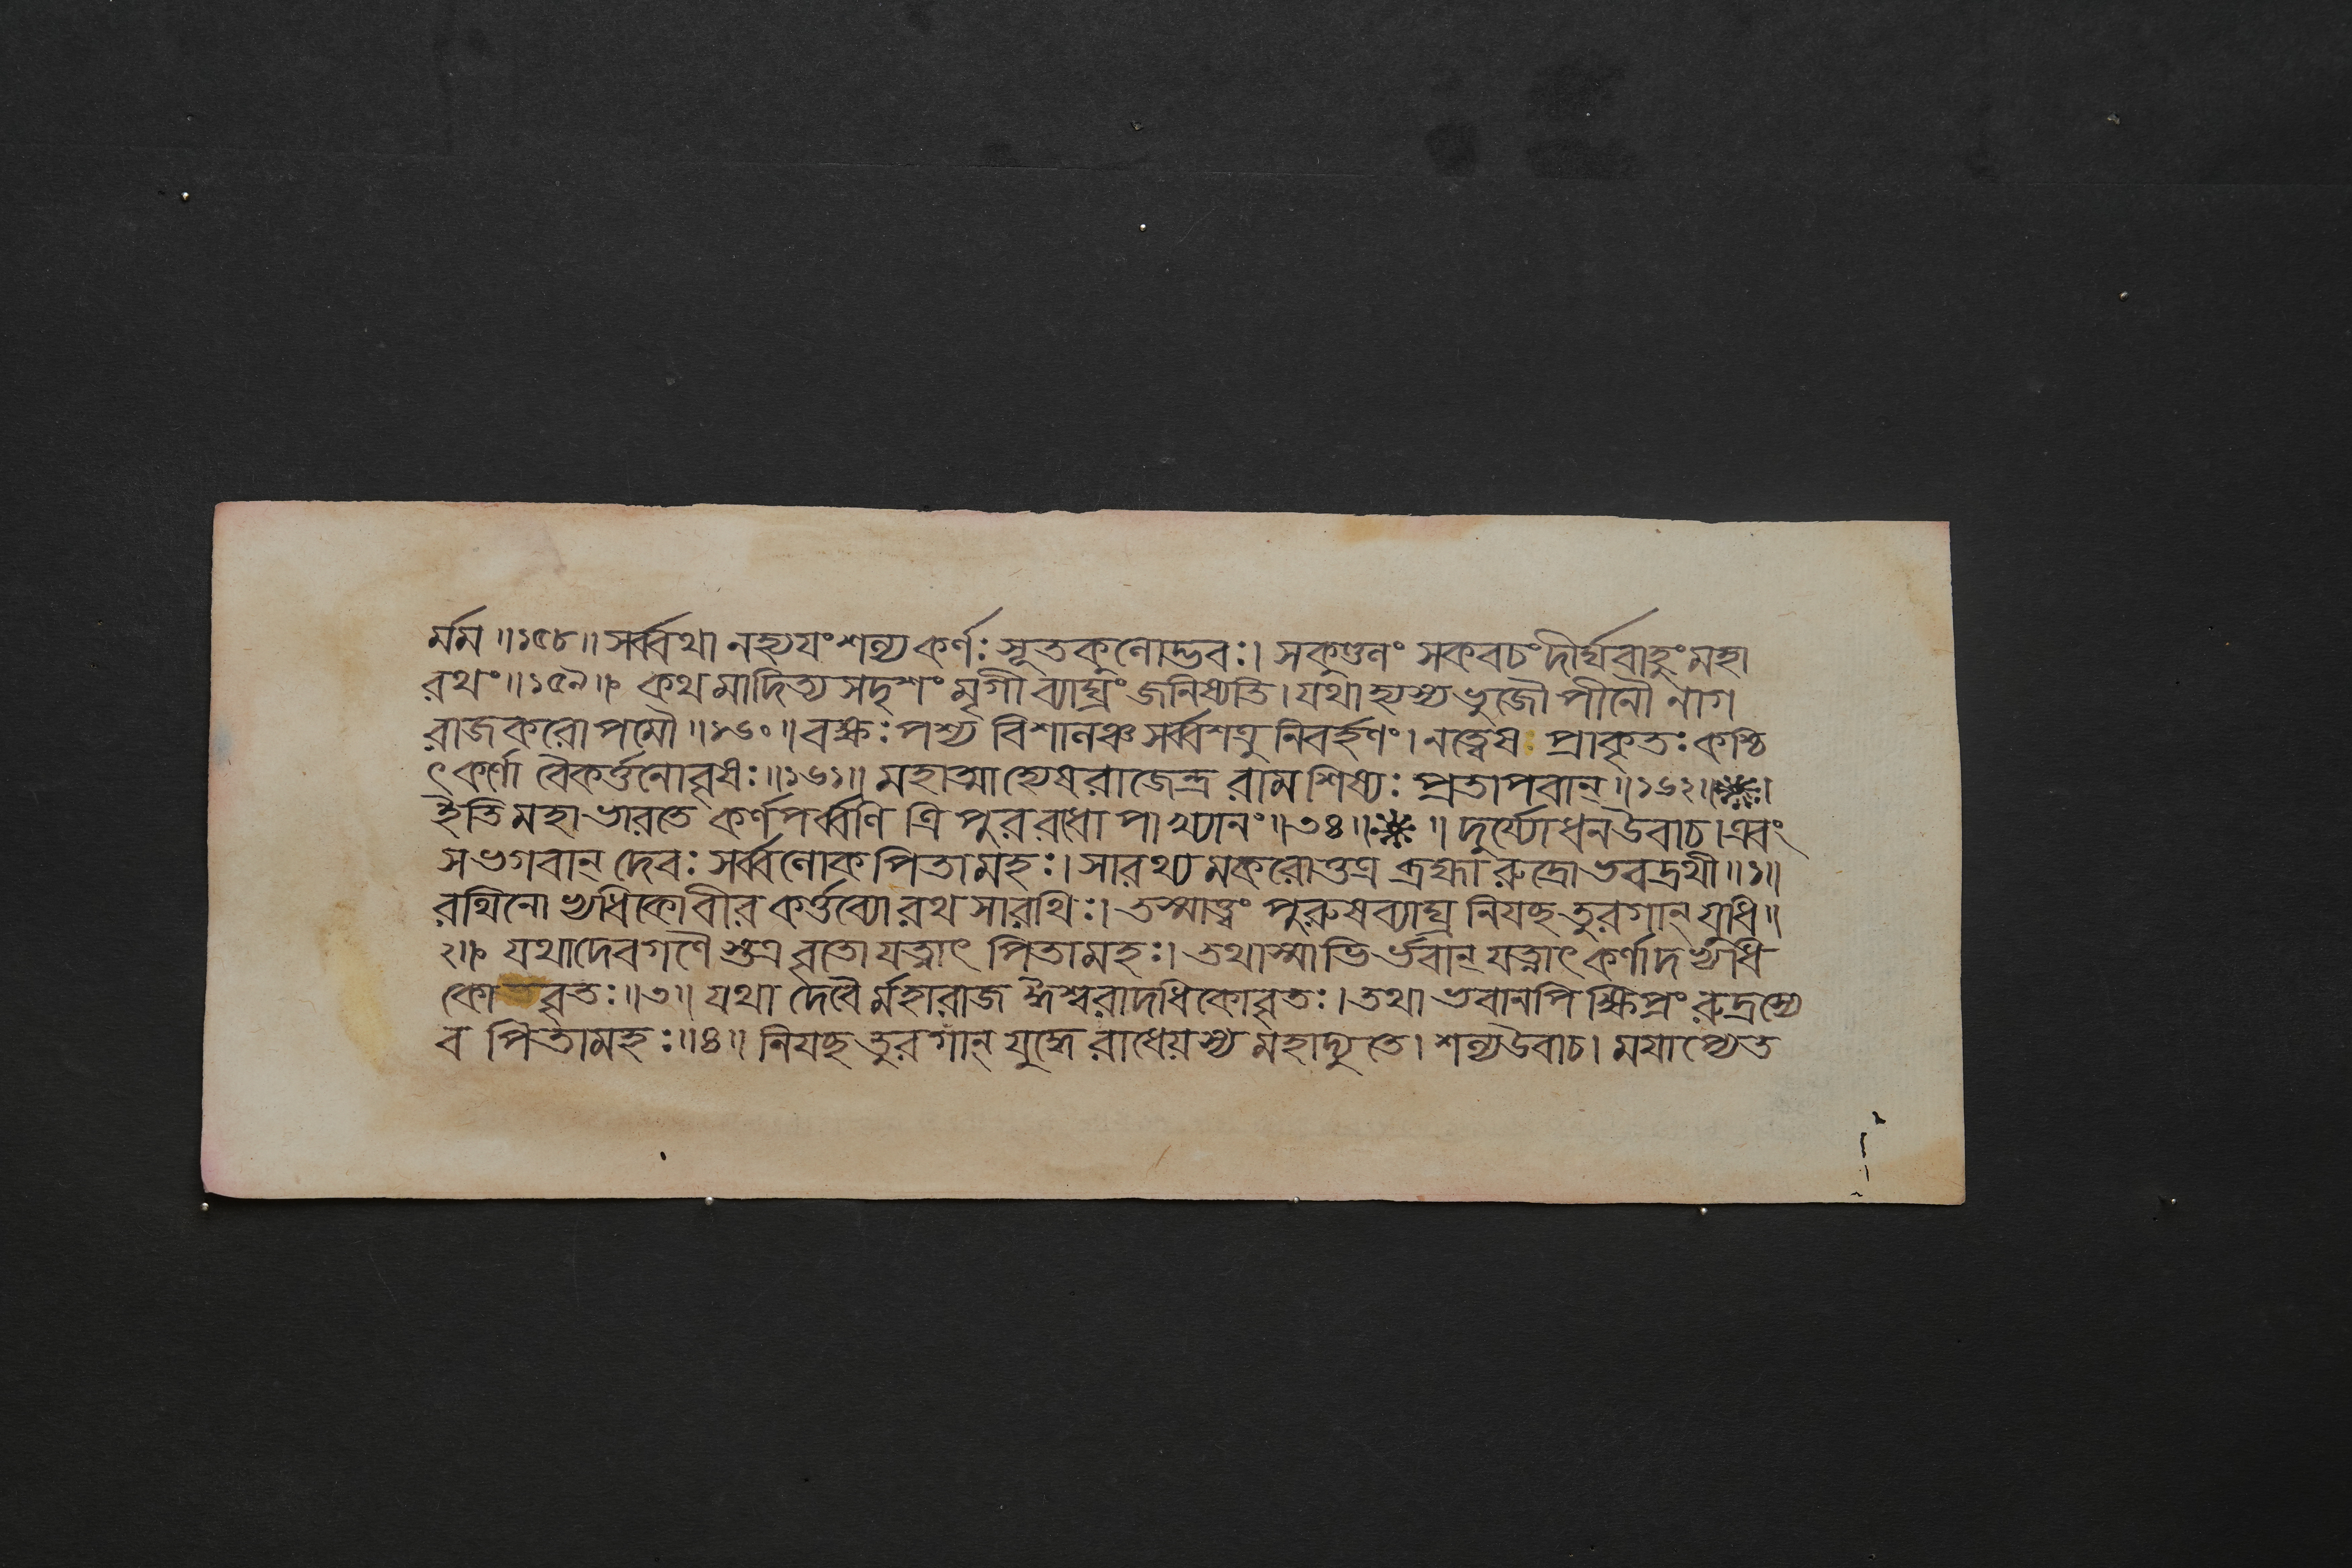 র্মম॥১৫৮॥সর্ব্বথা নহ্যয়ং শল্য কর্ণঃ সূতকুলোদ্ভবঃ। সকুণ্ডলং সকবচং দীর্ঘবাহুং মহা
রথং॥১৫৯॥ কথমাদিত্য সদৃশং মৃগী ব্যাঘ্রং জনিষ্যতি। যথা হ্যস্য ভুজৌ পীনৌ নাগ
রাজকরোপমৌ॥১৬০॥বক্ষঃ পশ্য বিশালঞ্চ সর্ব্বশত্রু নিবর্হণং। নত্বেষ প্রাকৃতঃ কশ্চি
ৎ কর্ণো বৈকর্ত্তনোবৃষঃ॥১৬১॥ মহাত্মাহ্যেষ রাজেন্দ্র রামশিষ্যঃ প্রতাপবান্॥১৬২॥❋।
ইতি মহাভারতে কর্ণপর্ব্বণি ত্রিপুরবধোপাখ্যানং॥৩৪॥❋॥ দুর্য্যোধনউবাচ। এবং
সভগবান্ দেবঃ সর্ব্বলোক পিতামহঃ। সারথ্যমকরোত্তত্র ব্রহ্মা রুদ্রোভবদ্রথী॥১॥
রথিনোভ্যধিকোবীর কর্ত্তব্যো রথসারথিঃ। তস্মাত্ত্বং পুরুষব্যাঘ্র নিযচ্ছ তুরগান্ যুধি॥
২॥ যথাদেবগণৈস্তত্র বৃতো যত্নাৎ পিতামহঃ। তথাস্মাভির্ভবান্ যত্নাৎ কর্ণাদভ্যধি
কো বৃতঃ॥৩॥ যথা দেবৈর্মহারাজ ঈশ্বরাদধিকোবৃতঃ। তথা ভবানপি ক্ষিপ্রং রুদ্রস্যে
ব পিতামহঃ॥৪॥ নিযচ্ছ তুরগান্ যুদ্ধে রাধেয়স্য মহাদ্যুতে। শল্যউবাচ। ময়াপ্যেত